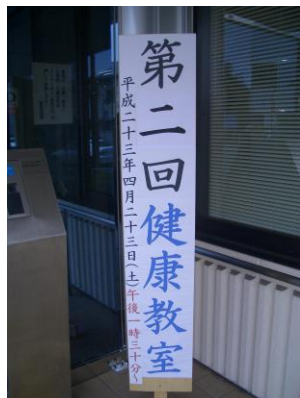 第二回健康教室
平成二十三年四月二十三日(土)午後一時三十分~